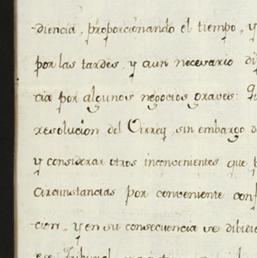 diencia, proporcionando el tiempo, y
por las tardes, y aun necesario di
cia por algunos negocios graves: q
resolucion del Virrey, sin embargo d
y considerar otros inconvenientes que
circunstancias por conveniente conf
cion, y en su consecuencia se dibidi
ese Tribunal